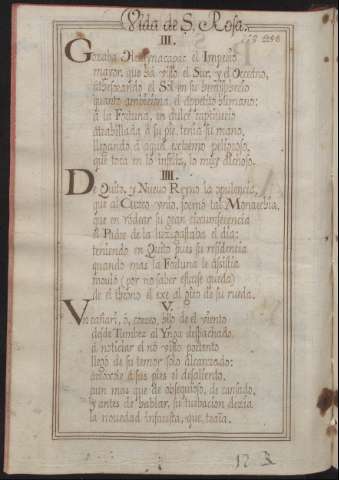 Vida de S. Rosa.
III.
Gozaba Huaynacapac el Imperio
mayor, que ha visto el Sur, y el Occeano,
atesorando el Sol en su hemispherio
quanto ambiciona el appetito humano:
à la Fortuna, en dulce captiverio
à su pie, tenia su mano,
llegando à aquel extremo peligroso,
que toca en lo infeliz, lo muy dichoso.
IIII.
De Quito, y Nuevo Reyno la opulencia,
que al Cuzco vnio, formò tal Monarchia,
que en rodear su gran circunferencia
el Padre de la luz gastaba el dia:
teniendo en Quito pues su residencia
quando mas la Fortuna le assistia
movió (por no saber estarse queda)
de el throno el exe al giro de su rueda.
V.
Vn Cañari, ò, correo, hijo de el viento
desde Tumbez al Ynga despachado,
à noticiar el no visto portento
llegò de su temor solo alcanzado:
à sus pies el desaliento,
aun mas que de obsequioso, de cansado,
y antes de hablar, su turbacion dezia
la novedad infausta, que traìa.